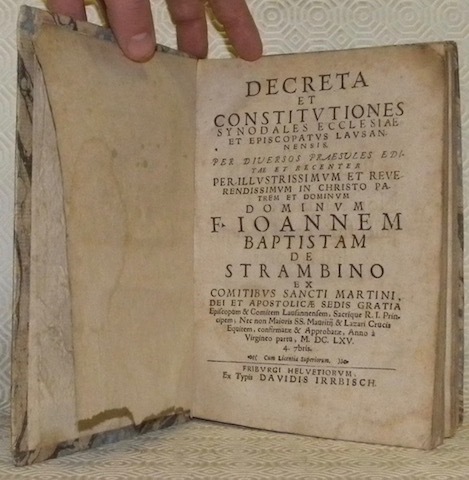 DECRETA
ET
CONSTITVTIONES
SYNODALES ECCLESIAE
ET EPISCOPATVS LAVSAN-
NENSIS.
PER DIVERSOS PRAESULES EDI-
TAE ET RECENTER
PER ILLVSTRISSIMVM ET REVE-
RENDISSIMVM IN CHRISTO PA-
TREM ET DOMINVM
DOMINVM
F. IOANNEM
BAPTISTAM
DE
STRAMBINO
EX
COMITIBVS SANCTI MARTINI,
DEI ET APOSTOLICÆ SEDIS GRATIA
Episcopum & Comitem Lausannensem, Sacrique R. I. Prin-
cipem, Nec non Maioris SS. Mauritij & Lazari Crucis
Equitem, confirmatæ & Approbatæ, Anno à
Virgineo partu, M. DC. LXV.
4. 7bris.
Cum Licentia Superiorum.
FRIBURGI HELVETIORVM.
Ex Typis DAVIDIS IRRBISCH.